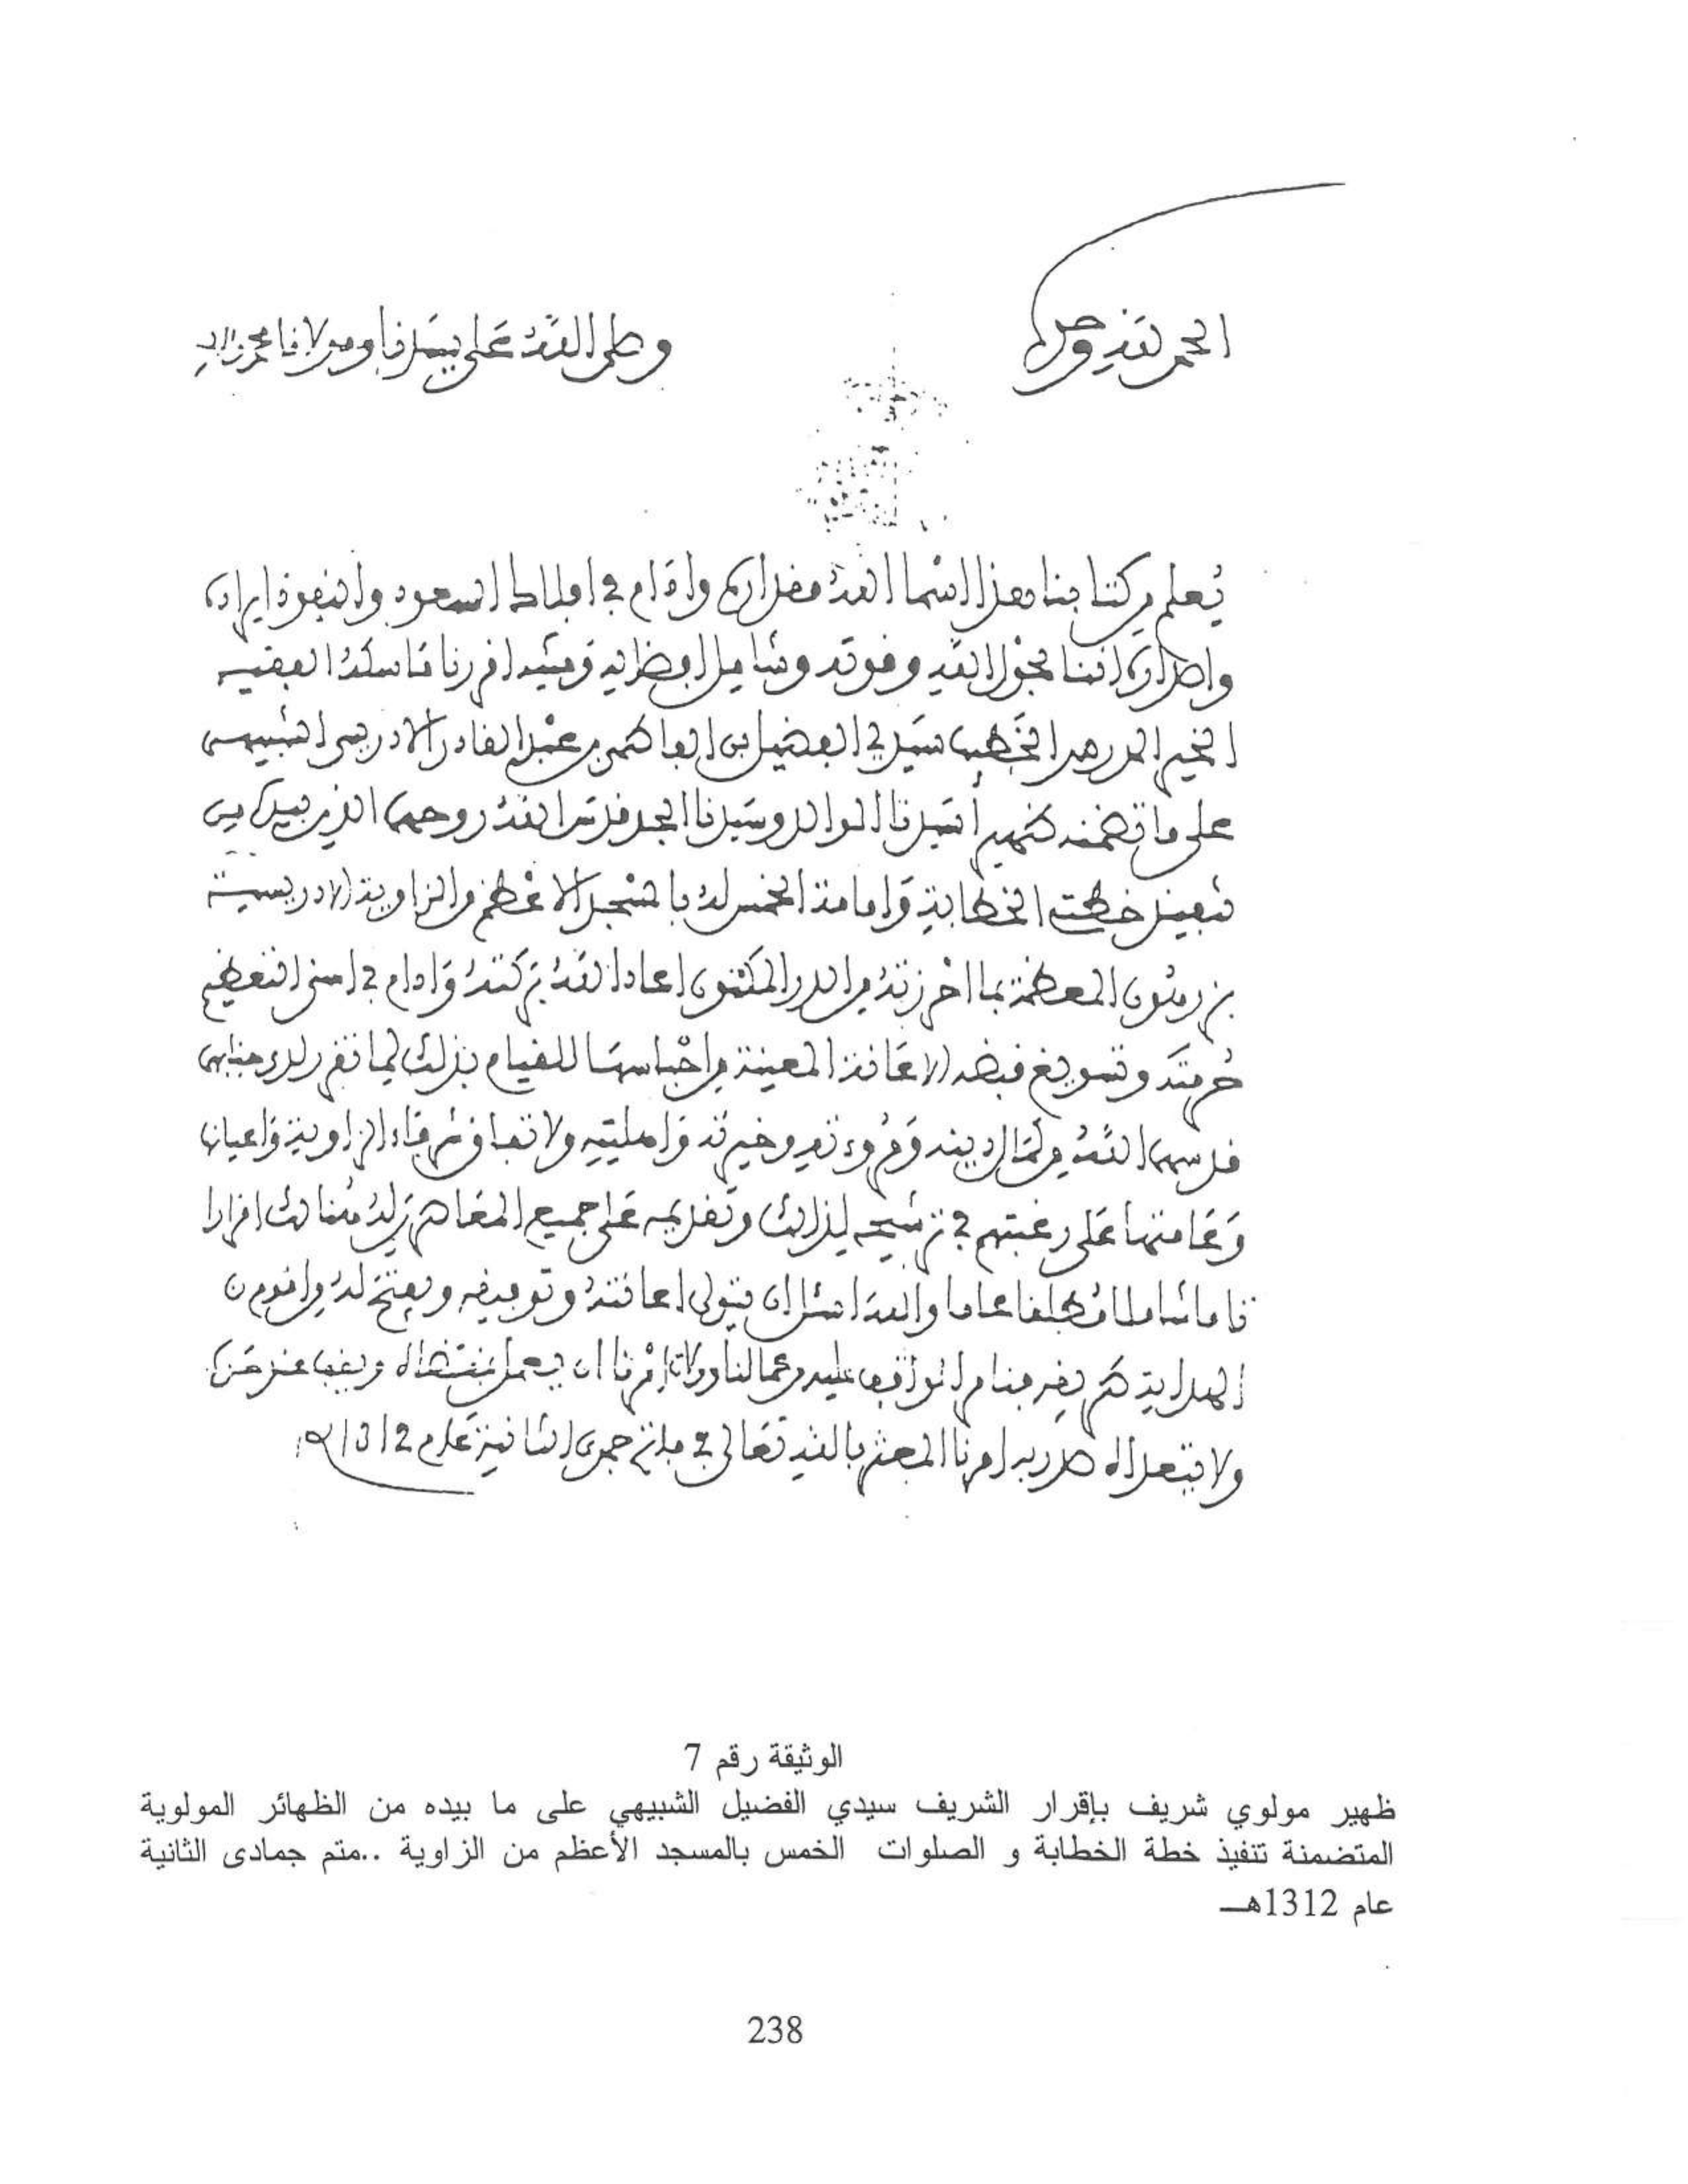 الحمد لله وحده
وصلى الله على سيدنا ومولانا محمد وآله
يعلم من كتابنا هذا اسما الله مقداره وأدام في السعود
اننا بحول الله وقوته وشامل اقررنا ماسكه الفقيه
الخير المدرس الخطيب سيدي الفضيل بن الفاطمي بن عبد القادر الادريسي الشبيهي
على ما تضمنه ظهير أسيدنا الوالد وسيدنا الجد قدس الله روحهما الذين بيده من
تنفيذ خطتي الخطابة وامامة الخمس له بالمسجد الاعظم من الزاوية الادريسية
بزرهون المعظمة بما احرزته من الدر المكنون اعاد الله بركته وادام في التعظيم
حرمته وتسويغ قبضه الاعانة المعينة من احباسها للقيام بذلك لما تقرر لدى
قدسهما الله من كمال دينه ومروءته وخيرته واهليته ولاتفاق شرفاء الزاوية واعيانها
وعامتها على رغبتهم في ترشيحه لذلك وتقديمه على جميع هنالك اقرارا
تاما شاملا مطلقا عاما والله اسئل ان يتولى اعانته وتوفيقه ويفتح له من اقوم
الهداية طريقه فنامر الواقف عليه من عمالنا وولاة امرنا ان يعمل بمقتضاه ويقف عند حده
ولا يتعداه صدر به امرنا المعتز بالله تعالى في متم جمدى الثانية عام 1312
الوثيقة رقم 7
ظهير مولوي شريف بإقرار الشريف سيدي الفضيل الشبيهي على ما بيده من الظهائر المولوية
المتضمنة تنفيذ خطة الخطابة و الصلوات الخمس بالمسجد الأعظم من الزاوية ..متم جمادى الثانية
عام 1312هـ
238